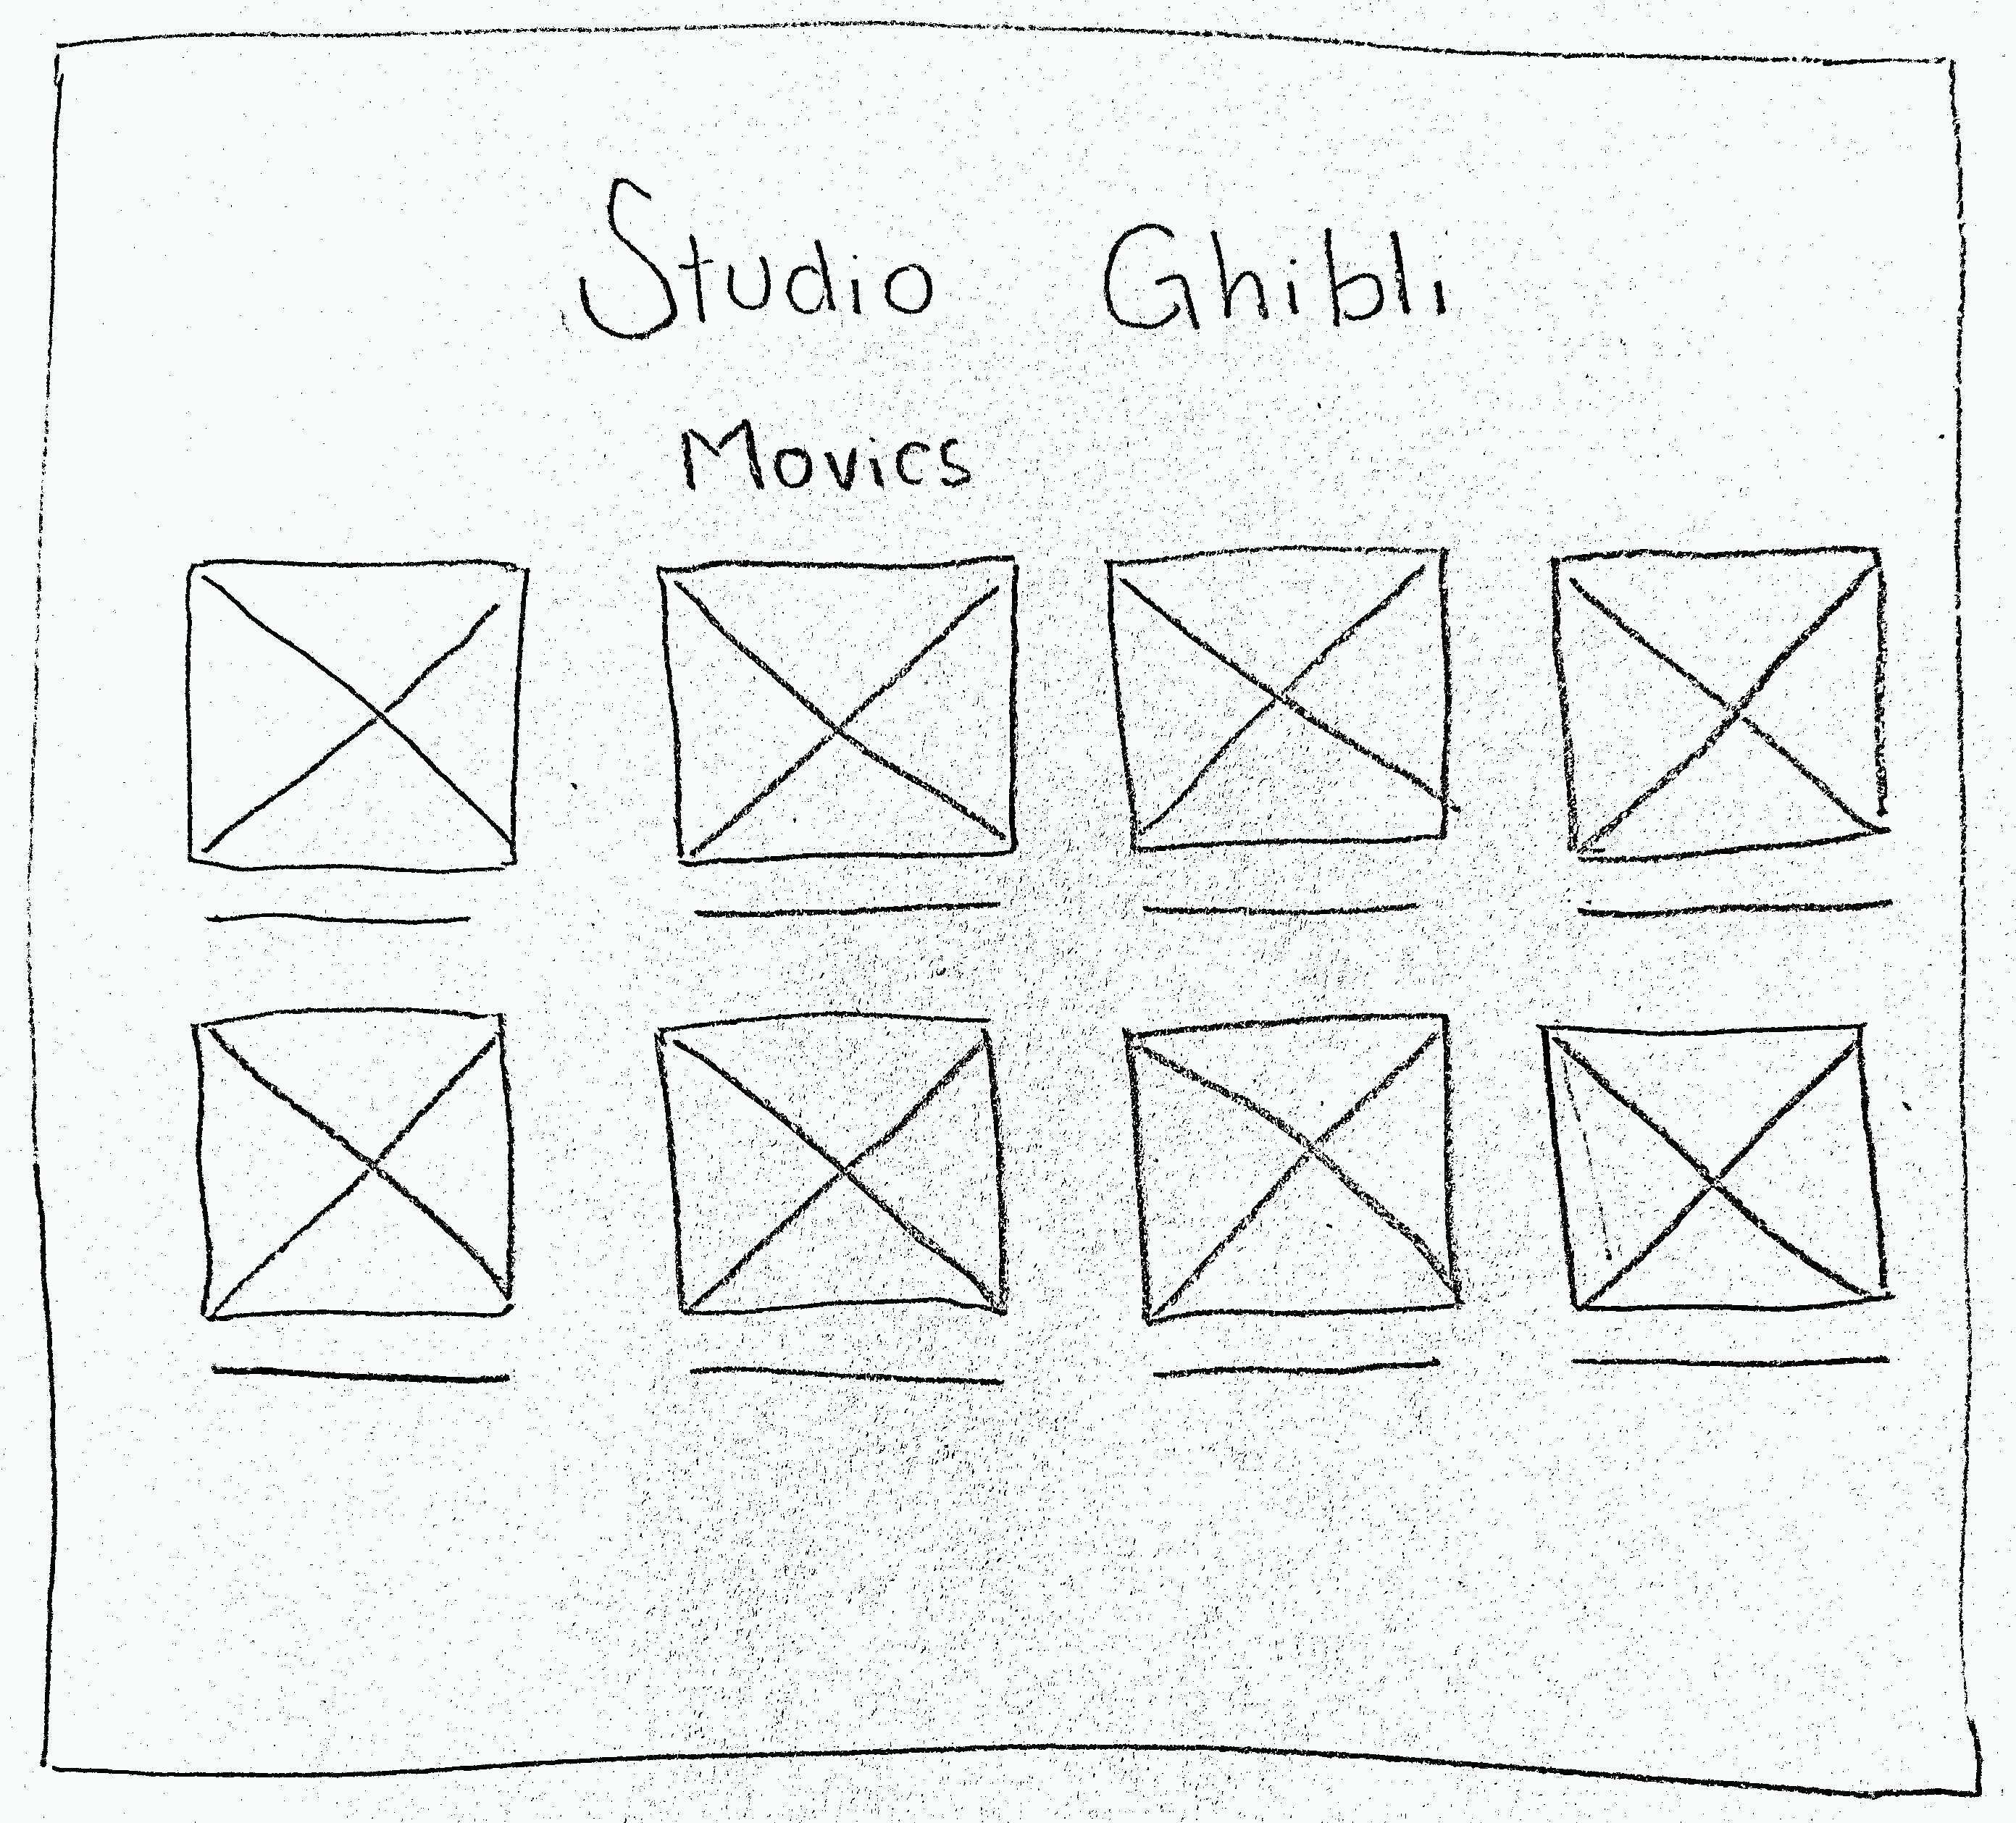 Studio Ghibli
Movies